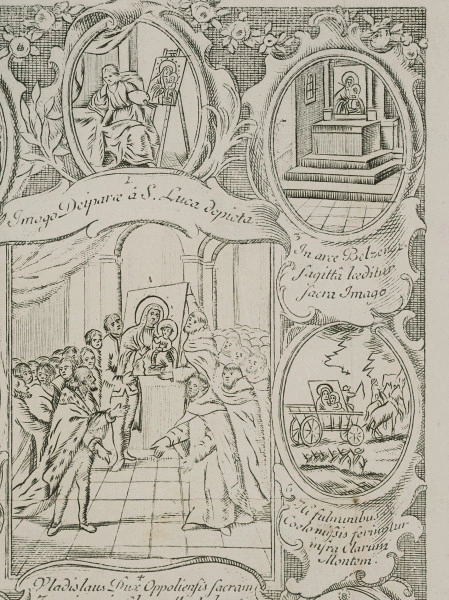 1
Imago Deiparæ à S. Luca depicta
3 In arce Belzensi
sagittâ læditur
sacra Imago
5 Hi fulminibus
Coelo missis feriuntur
infra Clarum
Montem.
4
Vladislaus Dux Oppoliensis sacram